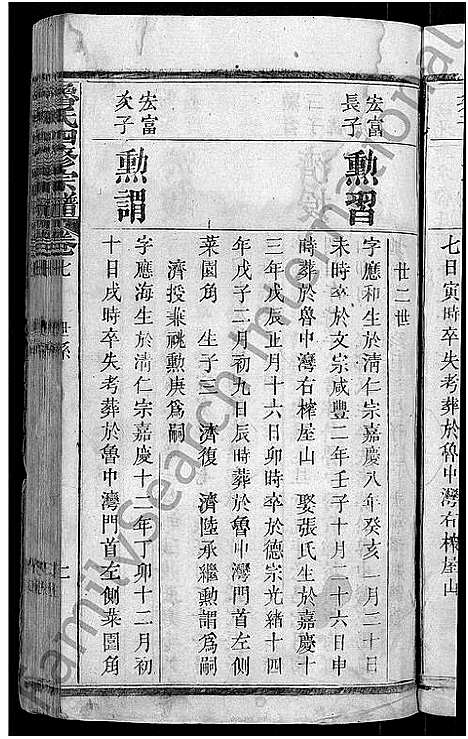 七日寅時卒失考葬於魯中灣右榨屋山
廿二世
宏富長子
勳習
字應和生於清仁宗嘉慶八年癸亥一月二十日
未時卒於文宗咸豐二年壬子十月二十六日申
時葬於魯中灣右榨屋山 娶張氏生於嘉慶十
三年戊辰正月十六日卯時卒於德宗光緒十四
年戊子二月初九日辰時葬於魯中灣門首左側
菜園角 生子三 濟復 濟陸承繼勳謂爲嗣
濟授兼祧勳庚爲嗣
宏富亥子
勳謂
字應海生於清仁宗嘉慶十二年丁卯十二月初
十日戌時卒失考葬於魯中灣門首左側菜園角
氏四修宗譜
世系
FamilySearch International